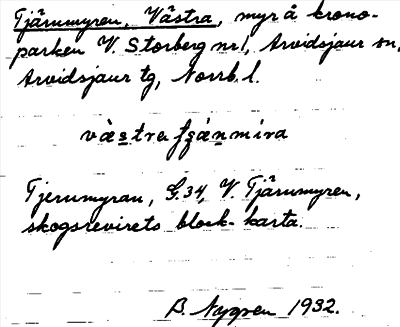 Tjärnmyren, Västra, myr å krono-
parken V. Storberg nr 1, Arvidsjaur sn,
Arvidsjaur tg, Norrb. l.
västra
Tjernmyran, G.34, V. Tjärnmyren,
skogsrevirets block-karta.
B. Nygren 1932.